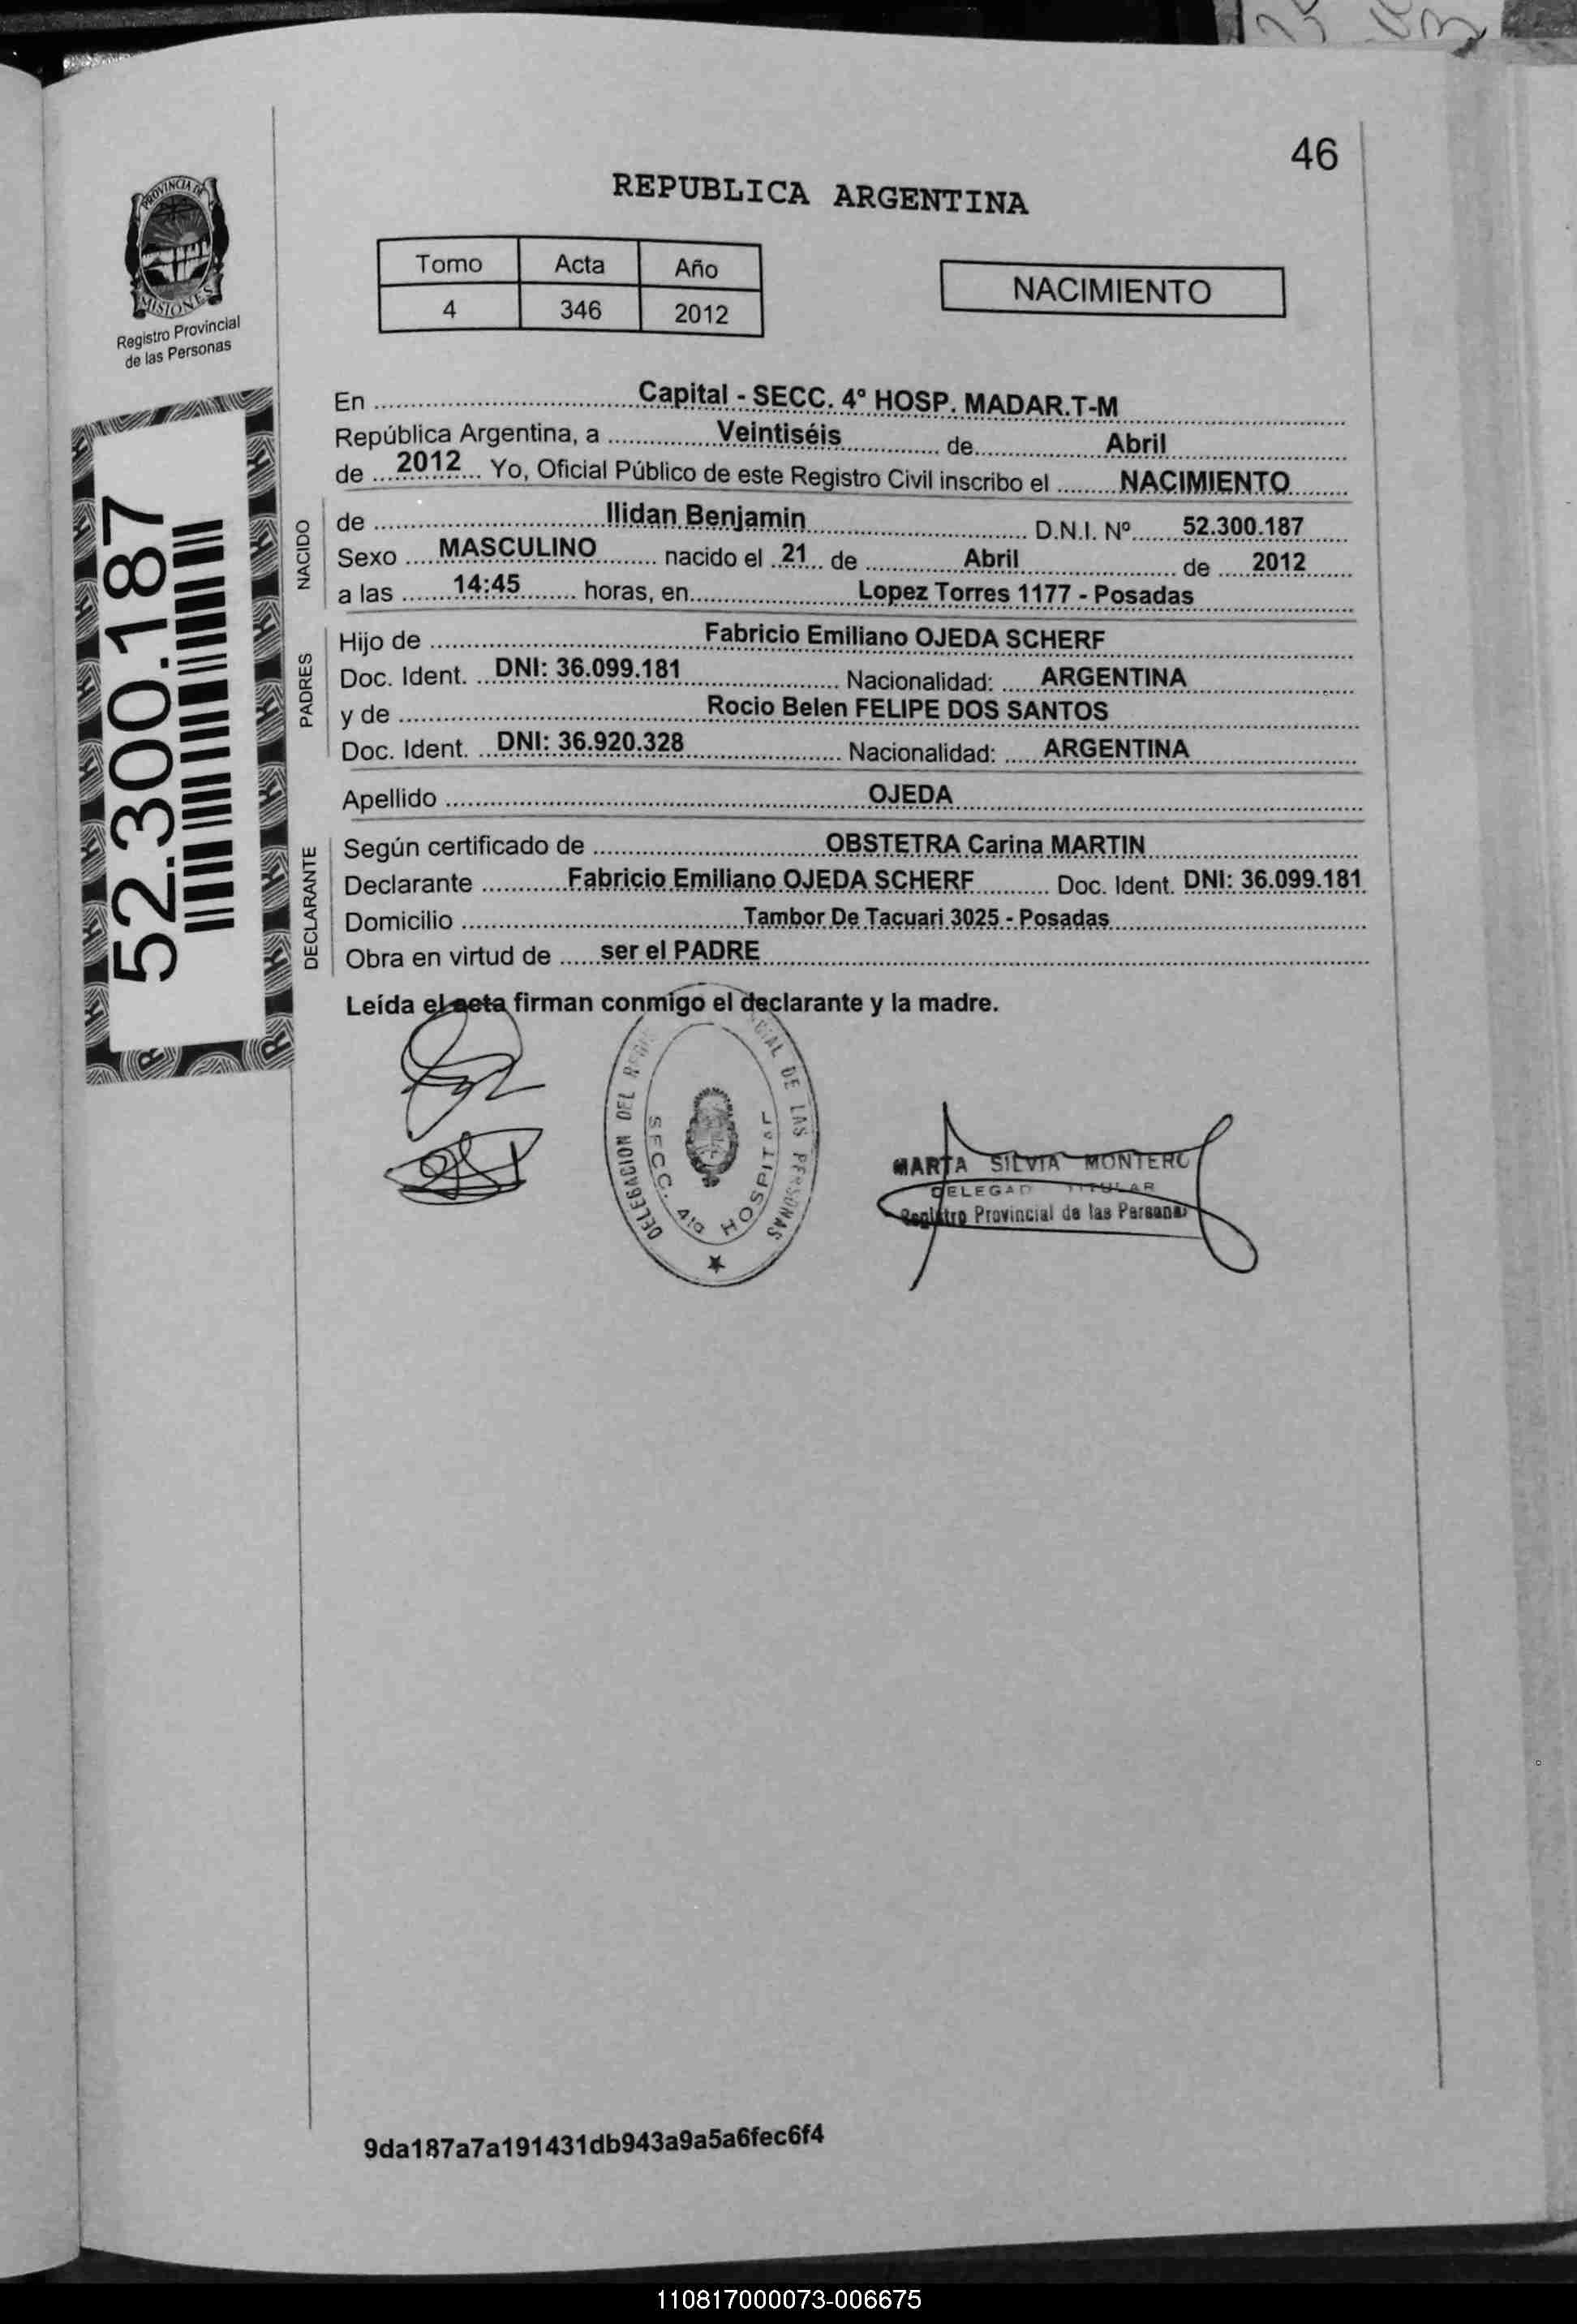 46
REPUBLICA ARGENTINA
PROVINCIA DE
MISIONES
Registro Provincial
de las Personas
Tomo Acta Año
4 346 2012
NACIMIENTO
En Capital - SECC. 4º HOSP. MADAR.T-M
República Argentina, a Veintiséis de Abril
de 2012 Yo, Oficial Público de este Registro Civil inscribo el NACIMIENTO
NACIDO
de Ilidan Benjamin D.N.I. Nº 52.300.187
Sexo MASCULINO nacido el 21 de Abril de 2012
a las 14:45 horas, en Lopez Torres 1177 - Posadas
PADRES
Hijo de Fabricio Emiliano OJEDA SCHERF
Doc. Ident. DNI: 36.099.181 Nacionalidad: ARGENTINA
y de Rocio Belen FELIPE DOS SANTOS
Doc. Ident. DNI: 36.920.328 Nacionalidad: ARGENTINA
Apellido OJEDA
DECLARANTE
Según certificado de OBSTETRA Carina MARTIN
Declarante Fabricio Emiliano OJEDA SCHERF Doc. Ident. DNI: 36.099.181
Domicilio Tambor De Tacuari 3025 - Posadas
Obra en virtud de ser el PADRE
Leída el acta firman conmigo el declarante y la madre.
52.300.187
DELEGACION DEL DE LAS PERSONAS
SECC. 4ta HOSPITAL
MARTA SILVIA MONTERO
DELEGAD TITULAR
Registro Provincial de las Personas
9da187a7a191431db943a9a5a6fec6f4
110817000073-006675